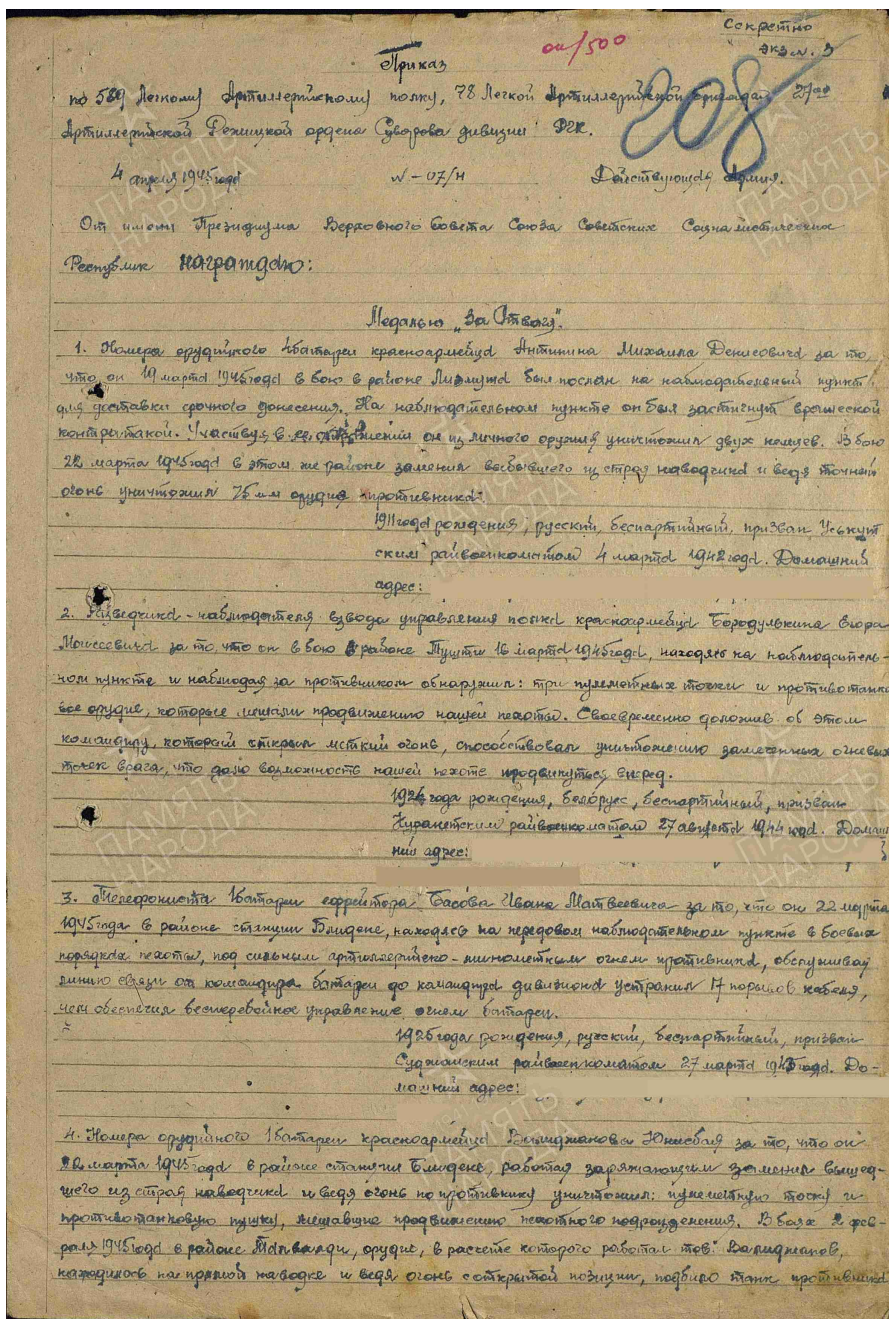 Секретно
Экз. N. 3
оп/500
208
Приказ
по 589 Легкому Артиллерийскому полку, 78 Легкой Артиллерийской бригады 27ой
Артиллерийской Режицкой ордена Суворова дивизии РГК.
4 апреля 1945 года N-07/н Действующая Армия.
От имени Президиума Верховного Совета Союза Советских Социалистических
Республик награждаю:
Медалью „За Отвагу".
1. Номера орудийного 4 батареи красноармейца Антипина Михаила Денисовича за то,
что он 19 марта 1945 года в бою в районе был послан на наблюдательный пункт
для доставки срочного донесения. На наблюдательном пункте он был застигнут вражеской
контратакой. Участвуя в её отражении он из личного оружия уничтожил двух немцев. В бою
22 марта 1945 года в этом же районе заменил выбывшего из строя наводчика и ведя точный
огонь уничтожил 75 мм орудие противника.
1911 года рождения, русский, беспартийный, призван Усть-Кут
ским райвоенкоматом 4 марта 1942 года. Домашний
адрес:
2. Разведчика-наблюдателя взвода управления полка красноармейца Бородулькина Егора
Моисеевича за то, что он в бою в районе 16 марта 1945 года, находясь на наблюдатель-
ном пункте и наблюдая за противником обнаружил: три пулеметных точки и противотанко
вое орудие, которые мешали продвижению нашей пехоты. Своевременно доложив об этом
командиру, который открыл меткий огонь, способствовал уничтожению замеченных огневых
точек врага, что дало возможность нашей пехоте продвинуться вперед.
года рождения, белорус, беспартийный, призван
райвоенкоматом 27 августа 1944 года. Домаш
ний адрес:
3. Телефониста 1 батареи ефрейтора Басова Ивана Матвеевича за то, что он 22 марта
1945 года в районе станции Блидене, находясь на передовом наблюдательном пункте в боевых
порядках пехоты, под сильным артиллерийско-минометным огнем противника, обслуживая
линию связи от командира батареи до командира дивизиона устранил 17 порывов кабеля,
чем обеспечил бесперебойное управление огнем батареи.
1925 года рождения, русский, беспартийный, призван
Суджанским райвоенкоматом 27 марта года. До-
машний адрес:
4. Номера орудийного 1 батареи красноармейца Валиджанова Юнисбая за то, что он
22 марта 1945 года в районе станции Блидене, работая заряжающим заменил вышед-
шего из строя наводчика и ведя огонь по противнику уничтожил: пулеметную точку и
противотанковую пушку, мешавшие продвижению пехотного подразделения. В боях 2 фев-
раля 1945 года в районе орудие, в расчете которого работал тов. Валиджанов,
находилось на прямой наводке и ведя огонь с открытой позиции, подбило танк противника
ПАМЯТЬ НАРОДА